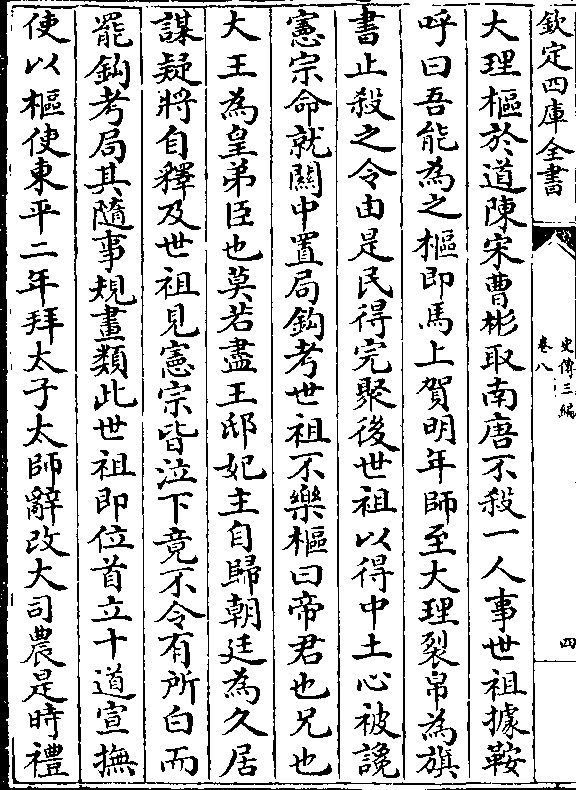 欽定四庫全書
史傳三編
卷八
四
大理樞於道陳宋曹彬取南唐不殺一人事世祖據鞍
呼曰吾能為之樞即馬上賀明年師至大理裂帛為旗
書止殺之令由是民得完聚後世祖以得中土心被讒
憲宗命就關中置局鈎考世祖不樂樞曰帝君也兄也
大王為皇弟臣也莫若盡王邸妃主自歸朝廷為久居
謀疑將自釋及世祖見憲宗皆泣下竟不令有所白而
罷鈎考局其隨事規畫類此世祖即位首立十道宣撫
使以樞使東平二年拜太子太師辭改大司農是時禮